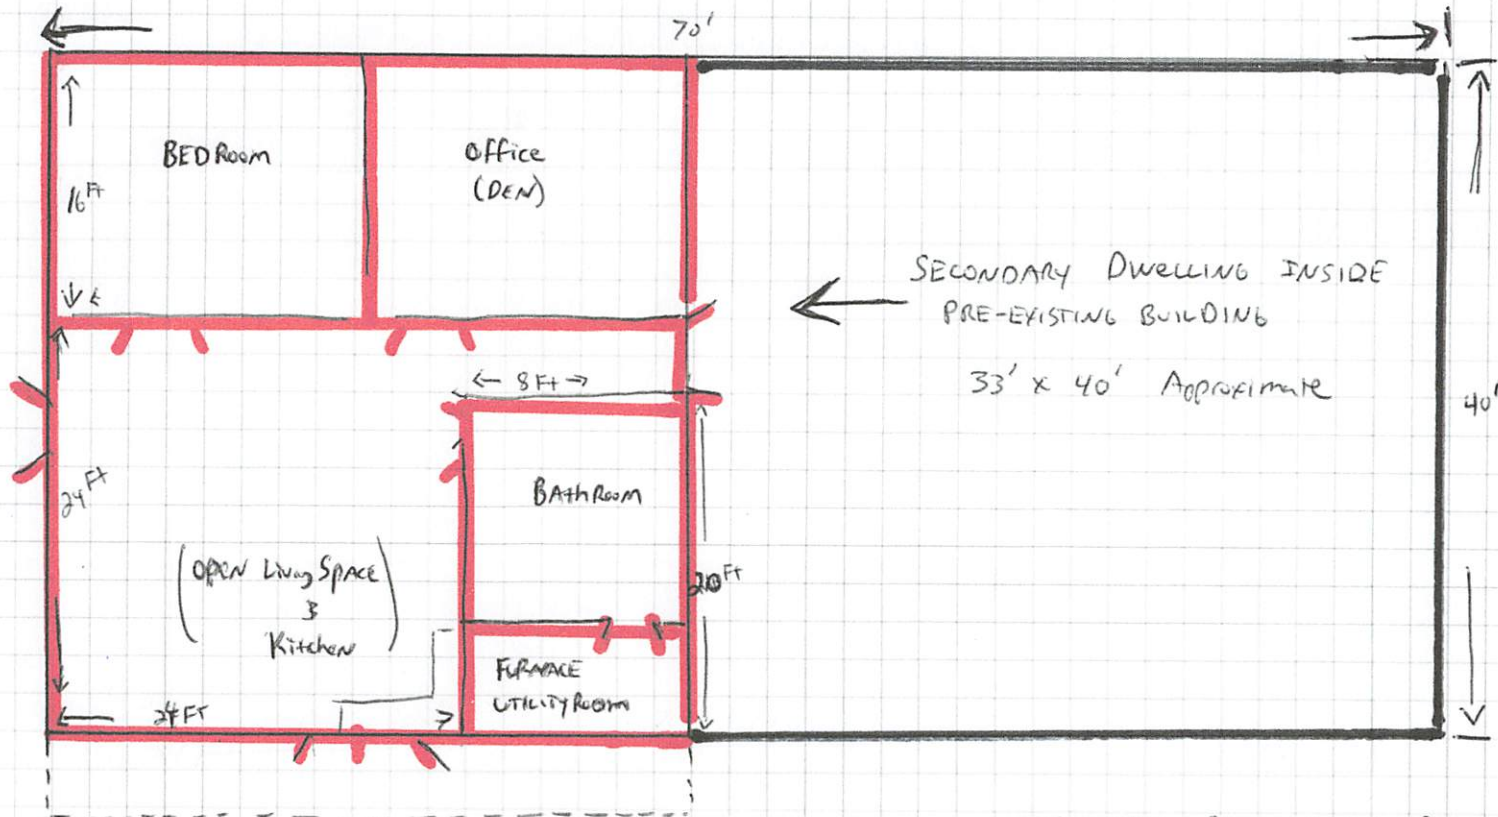 70'
BEDRoom
Office
(DEN)
16 Ft
SECONDARY DWELLING INSIDE
PRE-EXISTING BUILDING
33' x 40' Approximate
8 Ft
40'
24 Ft
BAthRoom
(OPEN Living SPACE
&
Kitchen)
20 Ft
FURNACE
UTILITY Room
24 FT